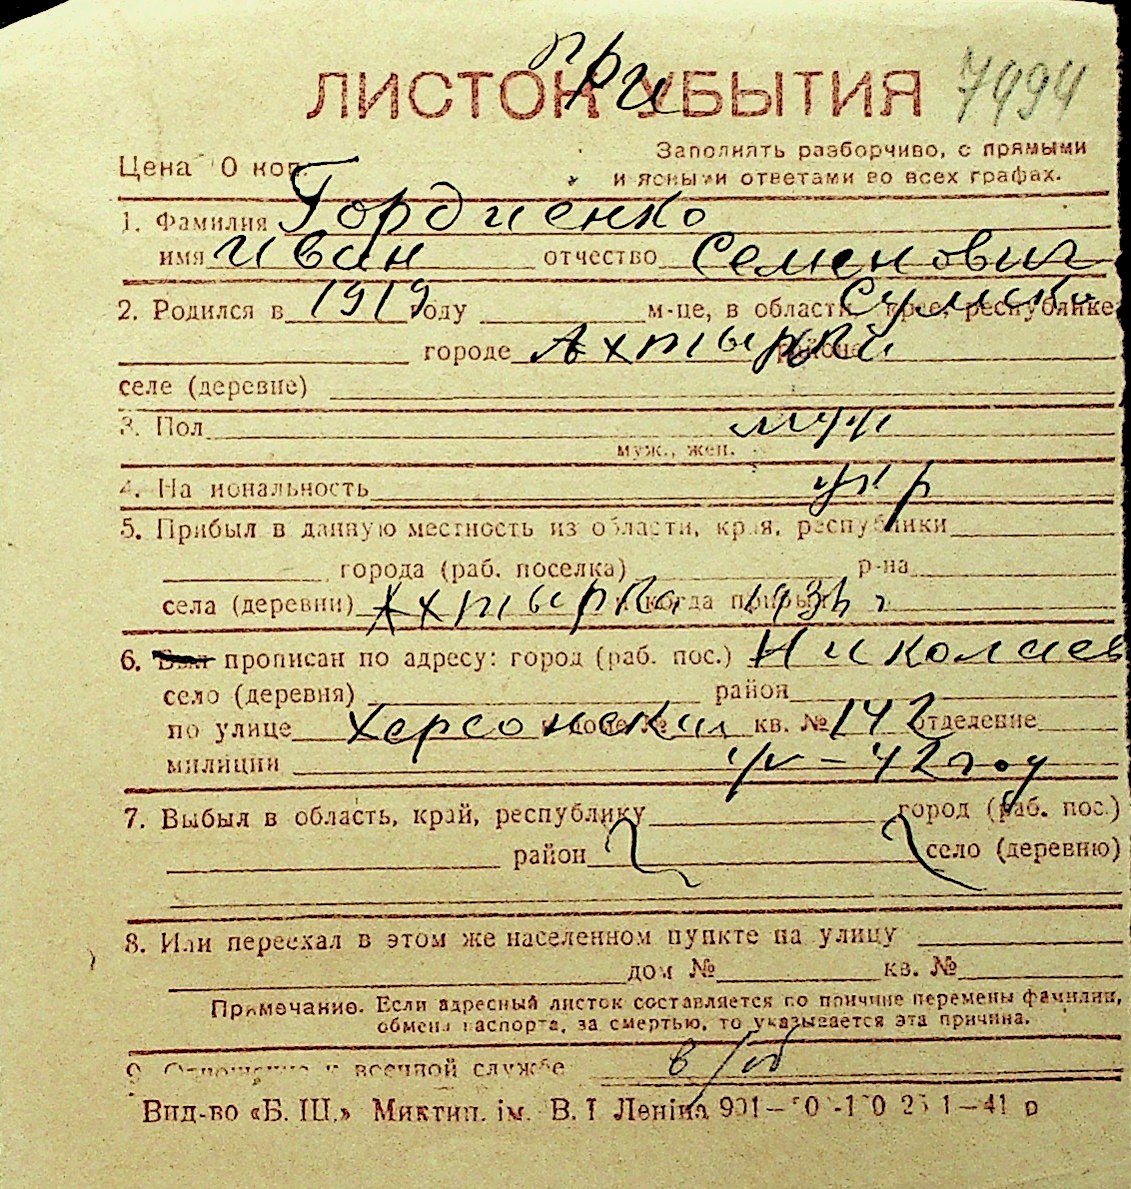 при
ЛИСТОК УБЫТИЯ 7494
Цена 0 коп.
Заполнять разборчиво, с прямыми
и ясными ответами во всех графах.
1. Фамилия Гордиенко
имя Иван отчество Семенович
2. Родился в 1919 году м-це, в области, крае, республике Сумска
городе Ахтырка районе
селе (деревне)
3. Пол муж
муж., жен.
4. Национальность укр
5. Прибыл в данную местность из области, края, республики
города (раб. поселка) р-на
села (деревни) Ахтырка и когда прибыл
6. Был прописан по адресу: город (раб. пос.) Николаев
село (деревня) район
по улице Херсонская в доме № кв. № 142 отделение
милиции
7. Выбыл в область, край, республику город (раб. пос.)
район село (деревню)
8. Или переехал в этом же населенном пункте на улицу
дом № кв. №
Примечание. Если адресный листок составляется по причине перемены фамилии,
обмена паспорта, за смертью, то указывается эта причина.
9. Отношение к военной службе в/об
Вид-во «Б. Ш.» Миктип. ім. В. І Леніна